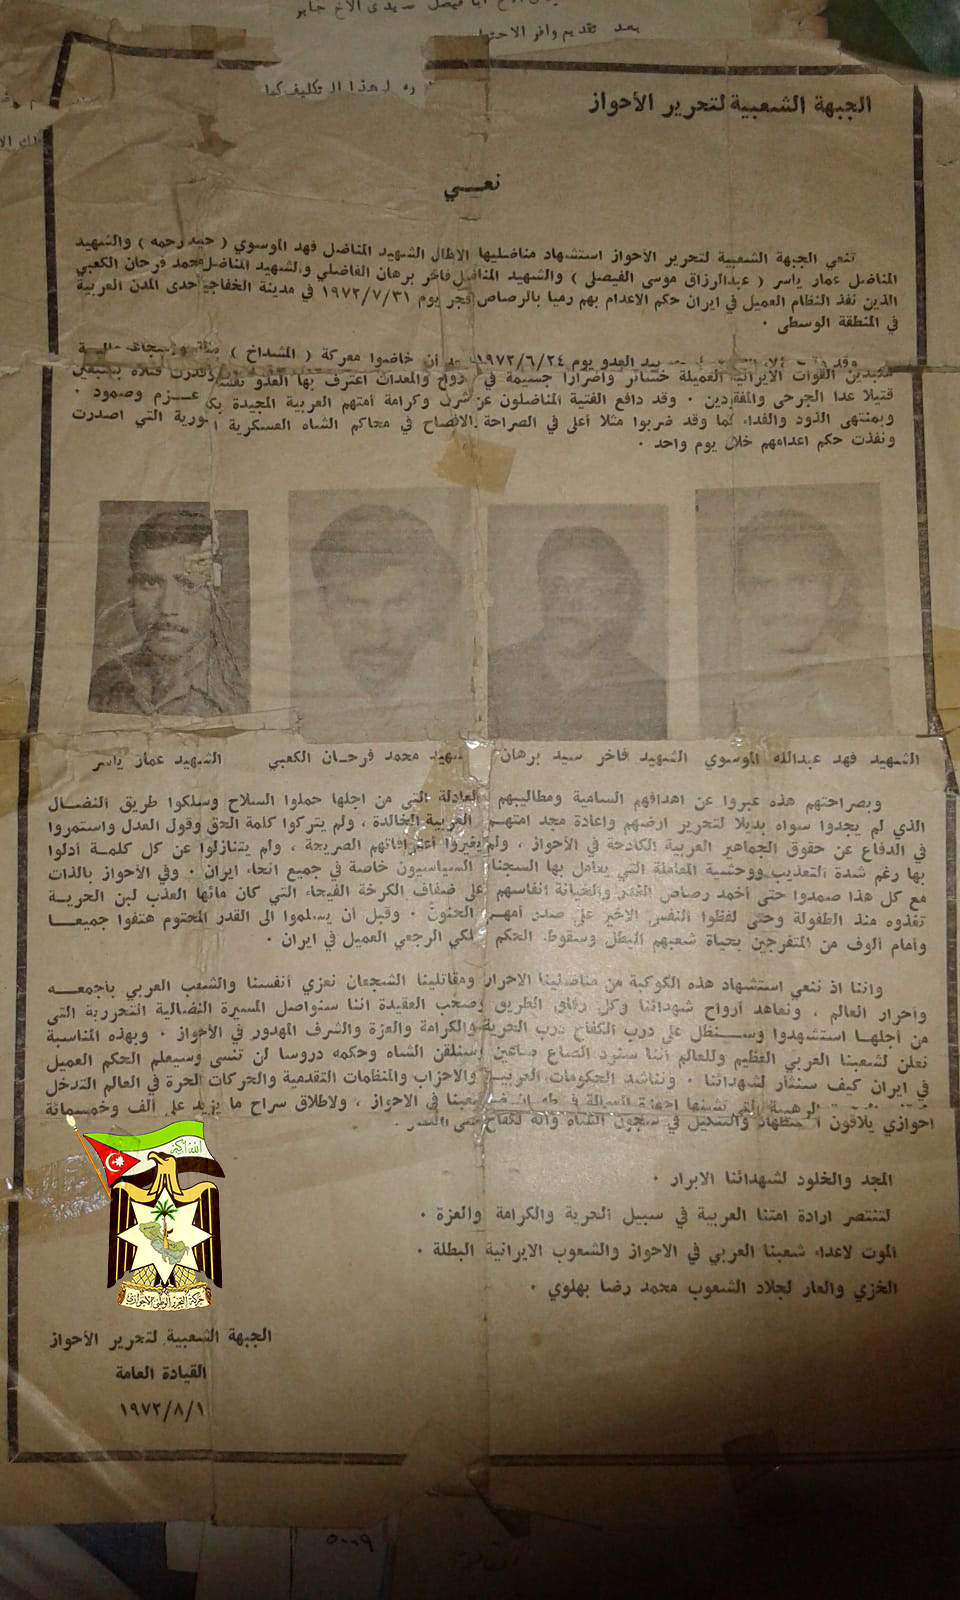 بعد تقديم وافر
الجبهة الشعبية لتحرير الأحواز
نعـــي
تنعي الجبهة الشعبية لتحرير الأحواز استشهاد مناضليها الابطال الشهيد المناضل فهد الموسوي ( حميد رحمه ) والشهيد
المناضل عمار ياسر ( عبدالرزاق موسى الفيصلي ) والشهيد المناضل فاخر برهان الفاضلي والشهيد المناضل محمد فرحان الكعبي
الذين نفذ النظام العميل في ايران حكم الاعدام بهم رميا بالرصاص فجر يوم ١٩٧٢/٧/٣١ في مدينة الخفاجية احدى المدن العربية
في المنطقة الوسطى ٠
وقد بيد العدو يوم ١٩٧٢/٦/٢٤ بعد أن خاضوا معركة ( المشداخ )
مكبدين القوات الايرانية العميلة خسائر وأضرارا جسيمة في والمعدات اعترف بها العدو
قتيلا عدا الجرحى والمفقودين ٠ وقد دافع الفتية المناضلون عن شرف وكرامة أمتهم العربية المجيدة بكل عـــزم وصمود ٠
وبمنتهى الذود والفداء كما وقد ضربوا مثلا أعلى في الصراحة والافصاح في محاكم الشاه العسكرية الصورية التي اصدرت
ونفذت حكم اعدامهم خلال يوم واحد ٠
الشهيد فهد عبدالله الموسوي الشهيد فاخر سيد برهان الشهيد محمد فرحـــان الكعبي الشهيد عمار ياسر
وبصراحتهم هذه عبروا عن اهدافهم السامية ومطاليبهم العادلة التي من اجلها حملوا السلاح وسلكوا طريق النضــال
الذي لم يجدوا سواه بديلا لتحرير ارضهم واعادة مجد امتهـــم العربية الخالدة ، ولم يتركوا كلمة الحق وقول العدل واستمروا
في الدفاع عن حقوق الجماهير العربية الكادحة في الأحواز ، ولم يغيروا اعترافاتهم الصريحة ، ولم يتنازلوا عن كل كلمـــة أدلوا
بها رغم شدة التعذيب ووحشية المعاملة التي يعامل بها السجناء السياسيون خاصة في جميع انحاء ايران ٠ وفي الأحواز بالذات
مع كل هذا صمدوا حتى أخمد رصاص الغدر والخيانة انفاسهم على ضفاف الكرخة الفيحاء التي كان مائها العذب لبن الحريــة
تغذوه منذ الطفولة وحتى لفظوا النفس الاخير على صدر أمهـــم الحنون ٠ وقبل أن يسلموا الى القدر المحتوم هتفوا جميعــــا
وأمام ألوف من المتفرجين بحياة شعبهم البطل وسقوط الحكم الملكي الرجعي العميل في ايران ٠
واننا اذ ننعي استشهاد هذه الكوكبة من مناضلينا الاحرار ومقاتلينا الشجعان نعزي أنفسنا والشعب العربي بأجمعـــه
واحرار العالم ، ونعاهد أرواح شهدائنا وكل رفاق الطريق وصحب العقيدة اننا سنواصل المسيرة النضالية التحررية التي
من أجلهــا استشهدوا وســـنظل على درب الكفاح درب الحرية والكرامة والعزة والشرف المهدور في الأحواز ٠ وبهذه المناسبة
نعلن لشعبنا العربي العظيم وللعالم أننا سنرد الصاع صاعين وسنلقن الشاه وحكمه دروسا لن تنسى وسيعلم الحكم العميل
في ايران كيف سنثأر لشهدائنا ٠ ونناشد الحكومات العربيـــة والاحزاب والمنظمات التقدمية والحركات الحرة في العالم التدخل
شعبنا في الاحواز ، ولاطلاق سراح ما يزيد على ألف وخمسمائة
احوازي يلاقون الاضطهاد والتنكيل في سجون الشاه وانه لكفاح حتى النصر ٠
المجد والخلود لشهدائنا الابرار ٠
لتنتصر ارادة امتنا العربية في سبيل الحرية والكرامة والعزة ٠
الموت لاعداء شعبنا العربي في الاحواز والشعوب الايرانية البطلة ٠
الخزي والعار لجلاد الشعوب محمد رضا بهلوي ٠
الله اكبر
حركة التحرير الوطني الاحوازي
الجبهة الشعبية لتحرير الأحواز
القيادة العامة
١٩٧٢/٨/١
٥٠٠٩